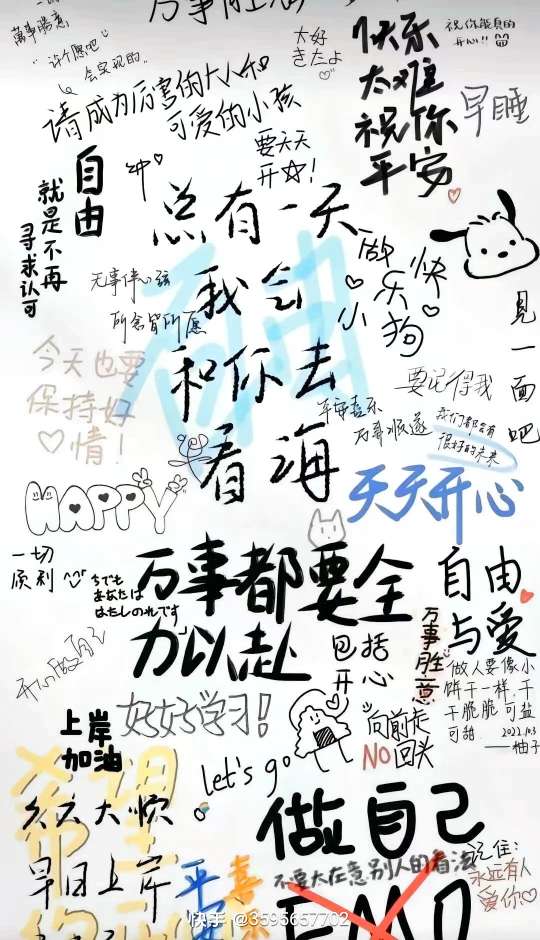 萬事勝意
"许个愿吧
会实现的"
请成为厉害的大人和
可爱的小孩
太好
きたよ
快乐
太难
祝你
平安
祝你能真的
开心!!
早睡
要天天
开☆!
自由
就是不再
寻求认可
总有一天
我会
和你去
看海
做快
乐
小狗
无事伴心弦
所念皆所愿
见
一
面
吧
今天也要
保持好
心情!
要记得我
平安喜乐
万事顺遂
我们都会有
很好的未来
天天开心
HAPPY
一切
顺利
万事都要全
力以赴
自由
与爱
万事胜意
包括
开心
开心做自己
好好学习!
上岸
加油
向前走
NO回头
做人要像小
饼干一样,干
干脆脆 可盐
可甜. 2022.10.3
——柚子
let's go
希望
六六大顺
早日上岸
做自己
不要太在意别人的看法
记住:
永远有人
爱你♡
平安
喜
EMO
快手 @3595657702